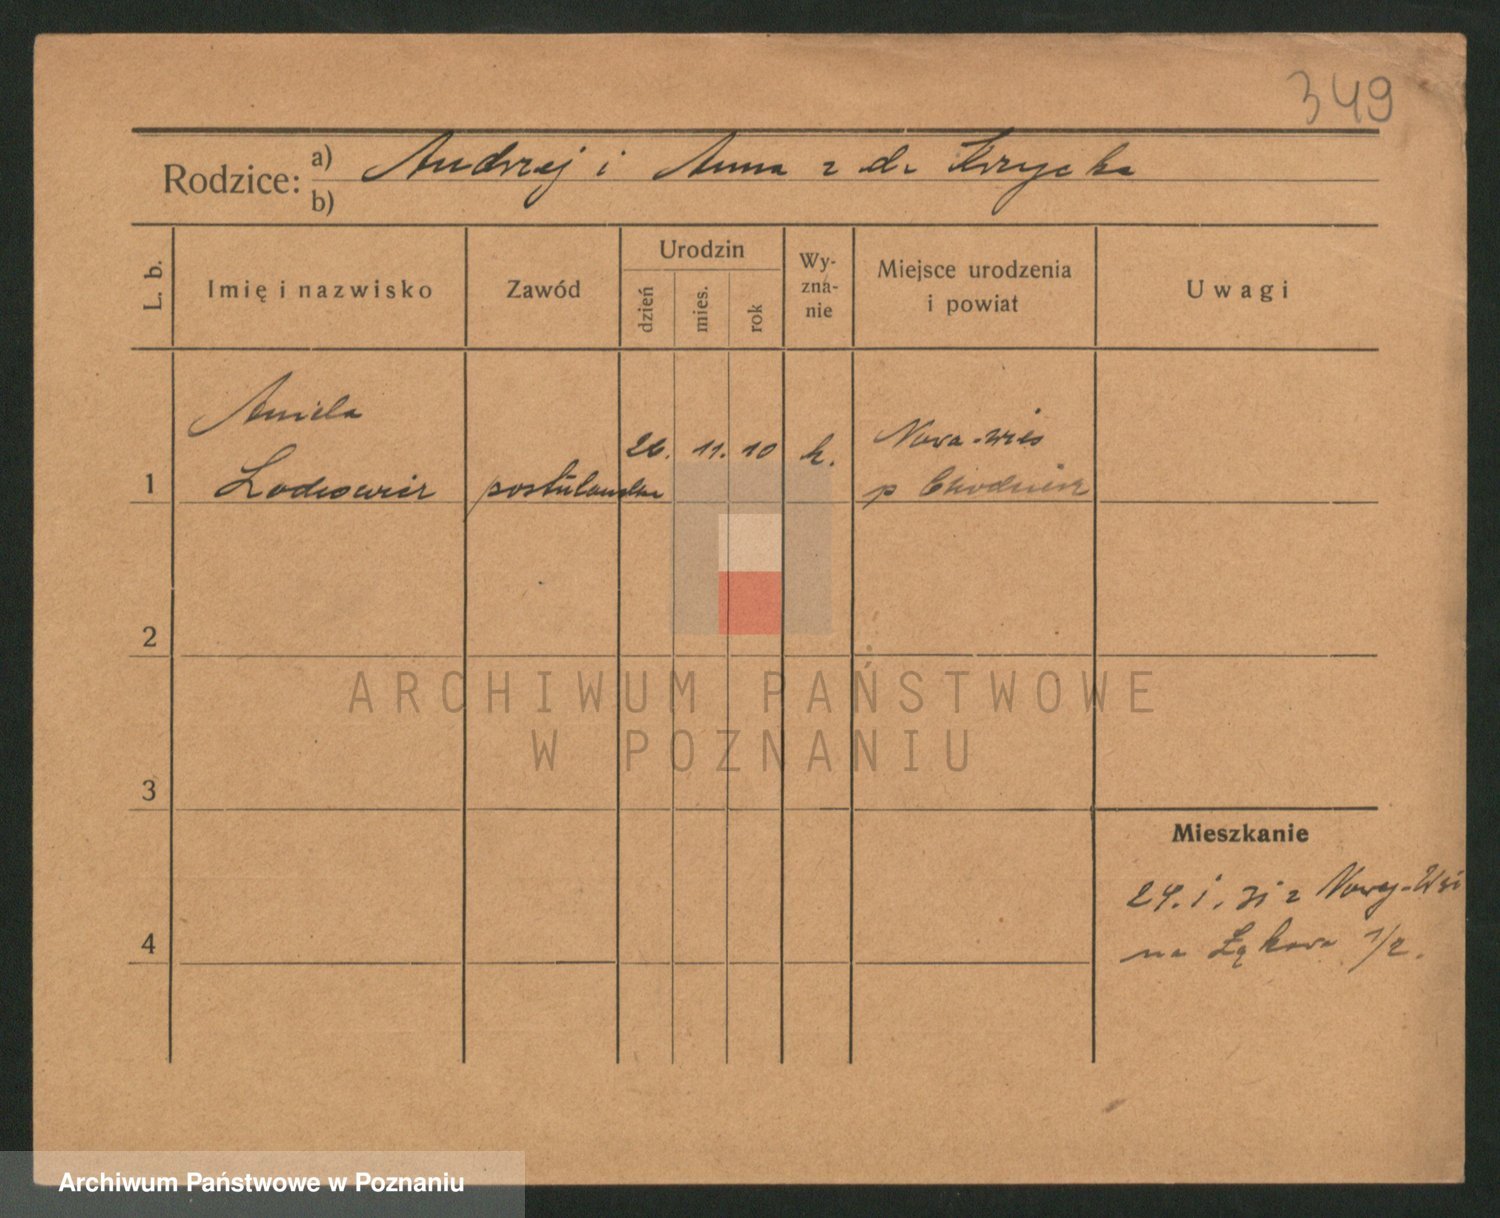 349
Rodzice: a) Andrzej i Anna z d. Krzycka
b)
L. b.
Imię i nazwisko
Zawód
Urodzin
dzień
mies.
rok
Wy-
zna-
nie
Miejsce urodzenia
i powiat
Uwagi
Aniela
26. 11. 10 k.
Nowa-wieś
1
postulantka
p Chodzież
2
ARCHIWUM PAŃSTWOWE
W POZNANIU
3
Mieszkanie
24. 1. 31 z Nowej-Wsi
4
na Łąkowa 1/2.
Archiwum Państwowe w Poznaniu